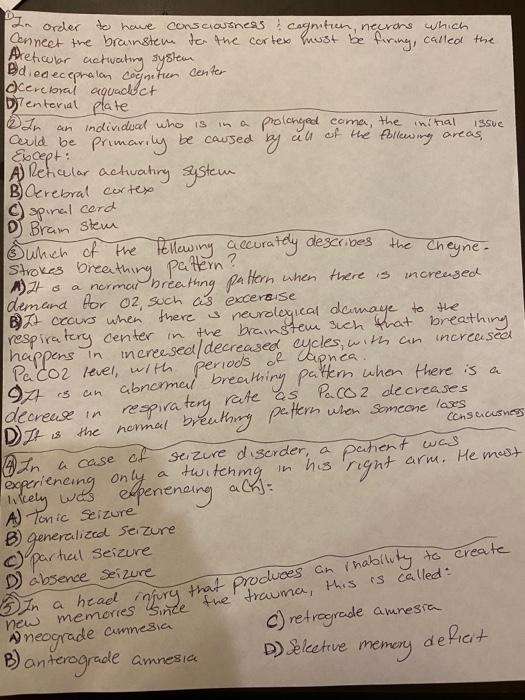 ① In order to have consciousness & cognition, neurons which
connect the brainstem to the cortex must be firing, called the
A) reticular activating system
B) diencephalon cognition center
C) cerebral aquaduct
D) Tentorial plate
② In an individual who is in a prolonged coma, the initial issue
could be primarily be caused by all of the following areas,
Except:
A) Reticular activating system
B) Cerebral cortex
C) spinal cord
D) Brain stem
③ Which of the following accurately describes the Cheyne-
Strokes breathing pattern?
A) It is a normal breathing pattern when there is increased
demand for O2, such as excercise
B) It occurs when there is neurological damage to the
respiratory center in the brainstem such that breathing
happens in increased/decreased cycles, with an increased
PaCO2 level, with periods of apnea.
C) It is an abnormal breathing pattern when there is a
decrease in respiratory rate as PaCO2 decreases
D) It is the normal breathing pattern when someone loses
consciousness
④ In a case of seizure disorder, a patient was
experiencing only a twitching in his right arm. He most
likely was experiencing a(n):
A) Tonic seizure
B) generalized seizure
C) partial seizure
D) absence seizure
⑤ In a head injury that produces an inability to create
new memories since the trauma, this is called:
A) neograde amnesia
B) anterograde amnesia
C) retrograde amnesia
D) Selective memory deficit